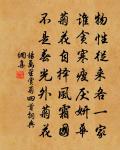 物性從來各一家
誰貪寒瘦厭妍華
菊花自擇風霜國
不是春光外菊花
楊萬里賞菊四首詞典
網集